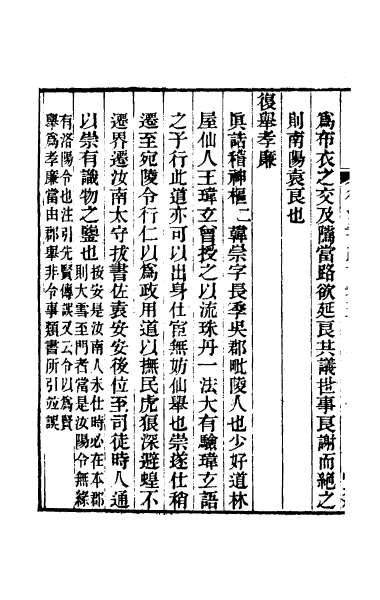 爲布衣之交及隲當路欲延良共議世事良謝而絕之
則南陽袁良也
復舉孝廉
眞誥稽神樞二韓崇字長季吳郡毗陵人也少好道林
屋仙人王瑋玄曾授之以流珠丹一法大有驗瑋玄語
之子行此道亦可以出身仕宦無妨仙舉也崇遂仕稍
遷至宛陵令行仁以爲政用道以撫民虎狼深避蝗不
遷界遷汝南太守拔書佐袁安安後位至司徒時人通
以崇有識物之鑒也按安是汝南人永仕時必在本郡
則大雪至門者當是汝陽令無緣
有洛陽令也注引先賢傳誤又云令以爲賢
舉爲孝廉當由郡舉非令事類書所引並誤